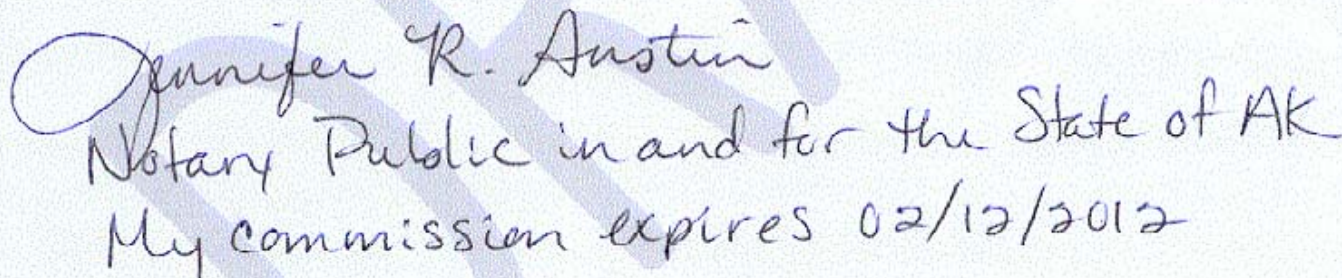 Jennifer R. Austin
Notary Public in and for the State of AK
My commission expires 02/12/2012